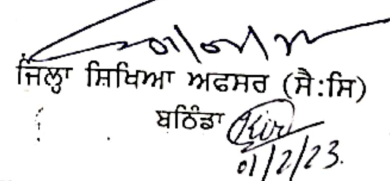 ਜਿਲ੍ਹਾ ਸਿਖਿਆ ਅਫਸਰ (ਸੈ:ਸਿ)
ਬਠਿੰਡਾ
01/2/23.